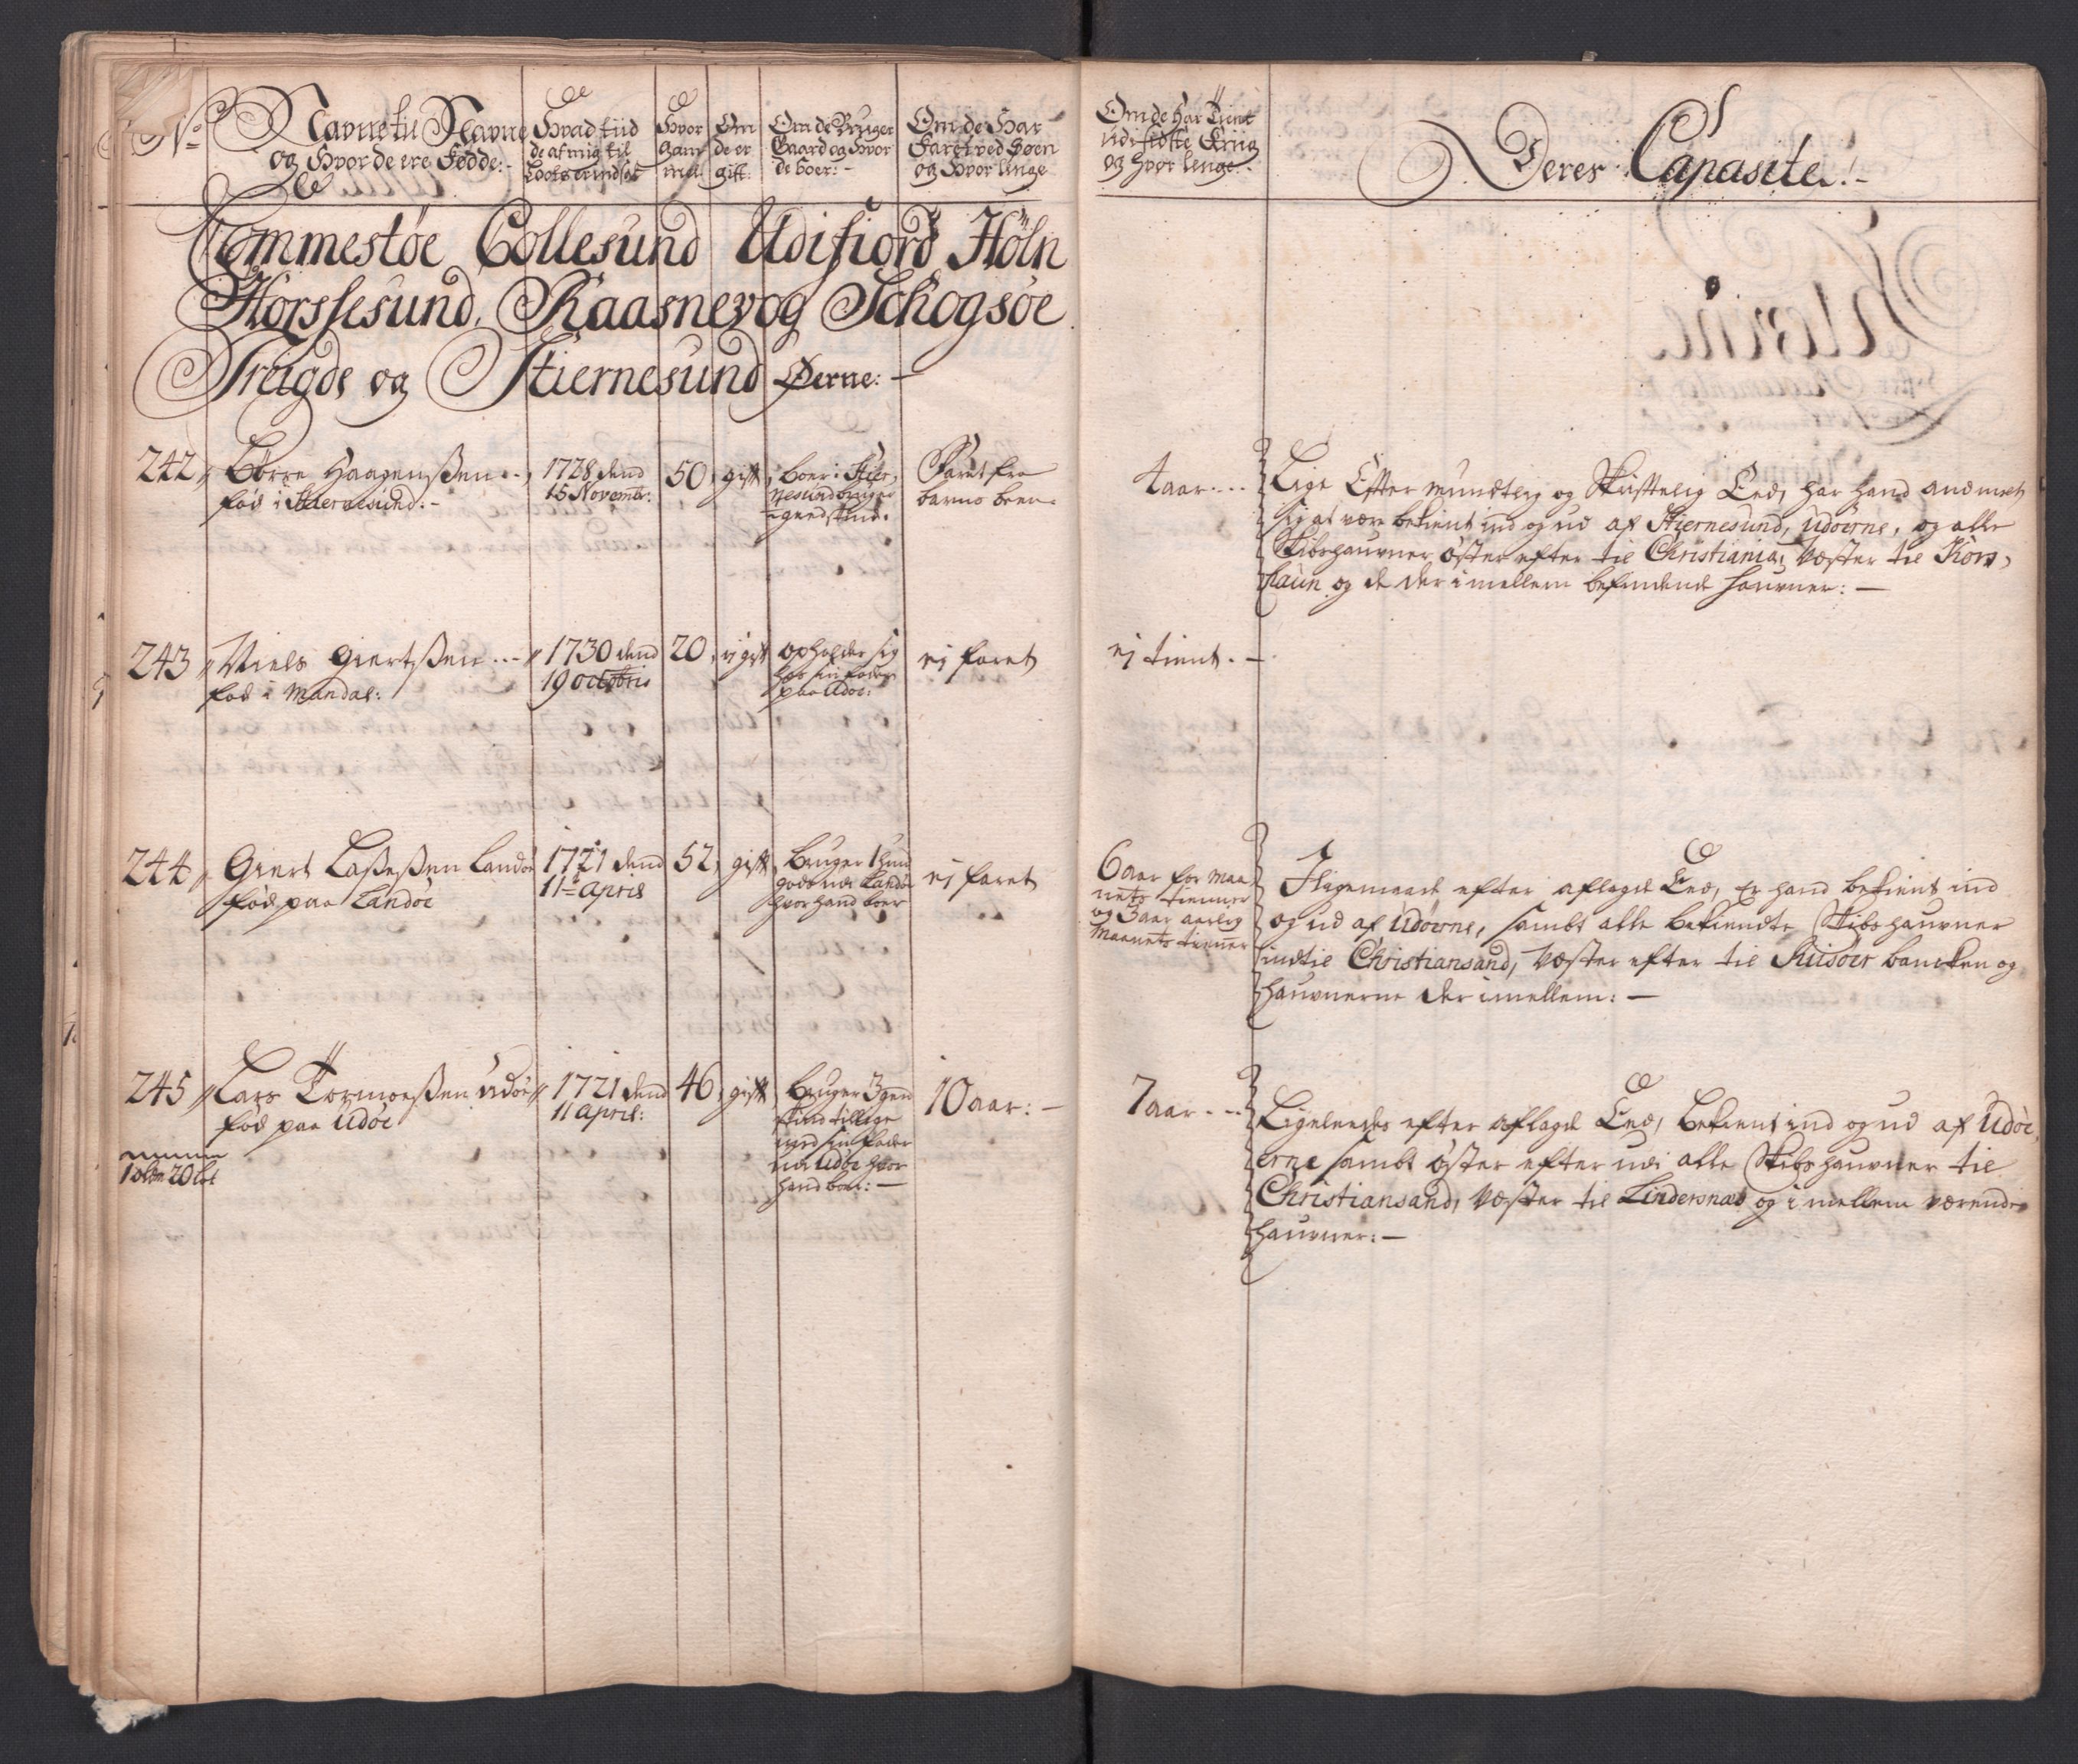 No
Navne til Navne
og Hvor de ere Fødde:-
Hvad tiid
de af mig til
Loots er indsat
Hvor
gam
mel
Om
de er
gift:
Om de Bruger
Gaard og Hvor
de boer:-
Om de Har
Faret ved Søen
og Hvor lenge
Om de har Tient
udi sidste Kriig
og hvor lenge:-
Deres Capasite.:-
Tommestøe Collesund Udifiord Höln
Horssesund, Raasnevog Schogsøe
Treigde og Stiernesund Øerne:-
242 Børre Haagenssen
fød i Stiernesund:-
1728 dend
15 Novembr:
50
gift
boer i Stier,
nesund bruger
Faret fra
barns been.
4 aar
Lige Efter mundtlig og Skriftelig Eed, har hand
sig at være bekient ind og ud af Stiernesund, Udöerne, og alle
Skibshauvner öster efter til Christiania, Vester til Kors,
haun og de der imellem befindende hauvner:-
243 Niels Giertssen
fød i Mandal:
1730 dend
19 octobris
20
ej gift
opholder sig
hos sin fader
paa Udöe:
ej faret
ej tient.-
244 Giert Lassessen Landöe
fød paa Landöe
1721 dend
11te April
52
gift
Bruger 1 hud
gods udi Landöe
hvor hand boer
ej faret
6 aar for maa
nets tienner
og 3 aar aarlig
Maanets tienner
I ligemaade efter aflagde Eed, Er hand bekient ind
og ud af Udöerne, sambt alle bekiendte Skibshauvner
indtil Christiansand, Vester efter til Riisöer bancken og
hauvnerne der imellem:-
245 Lars Tormoessen Udöe
fød paa Udöe
1721 dend
11 April:
46
gift
Bruger 3 gend
skind tillige
med sin fader
udi Udöe hvor
hand boer:-
10 aar:-
7 aar
Ligeleedes efter aflagde Eed, bekient ind og ud af Udöe,
erne sambt öster efter udi alle Skibshauvner til
Christiansand, Vester til Lindersnæs og i mellem værende
hauvner:-